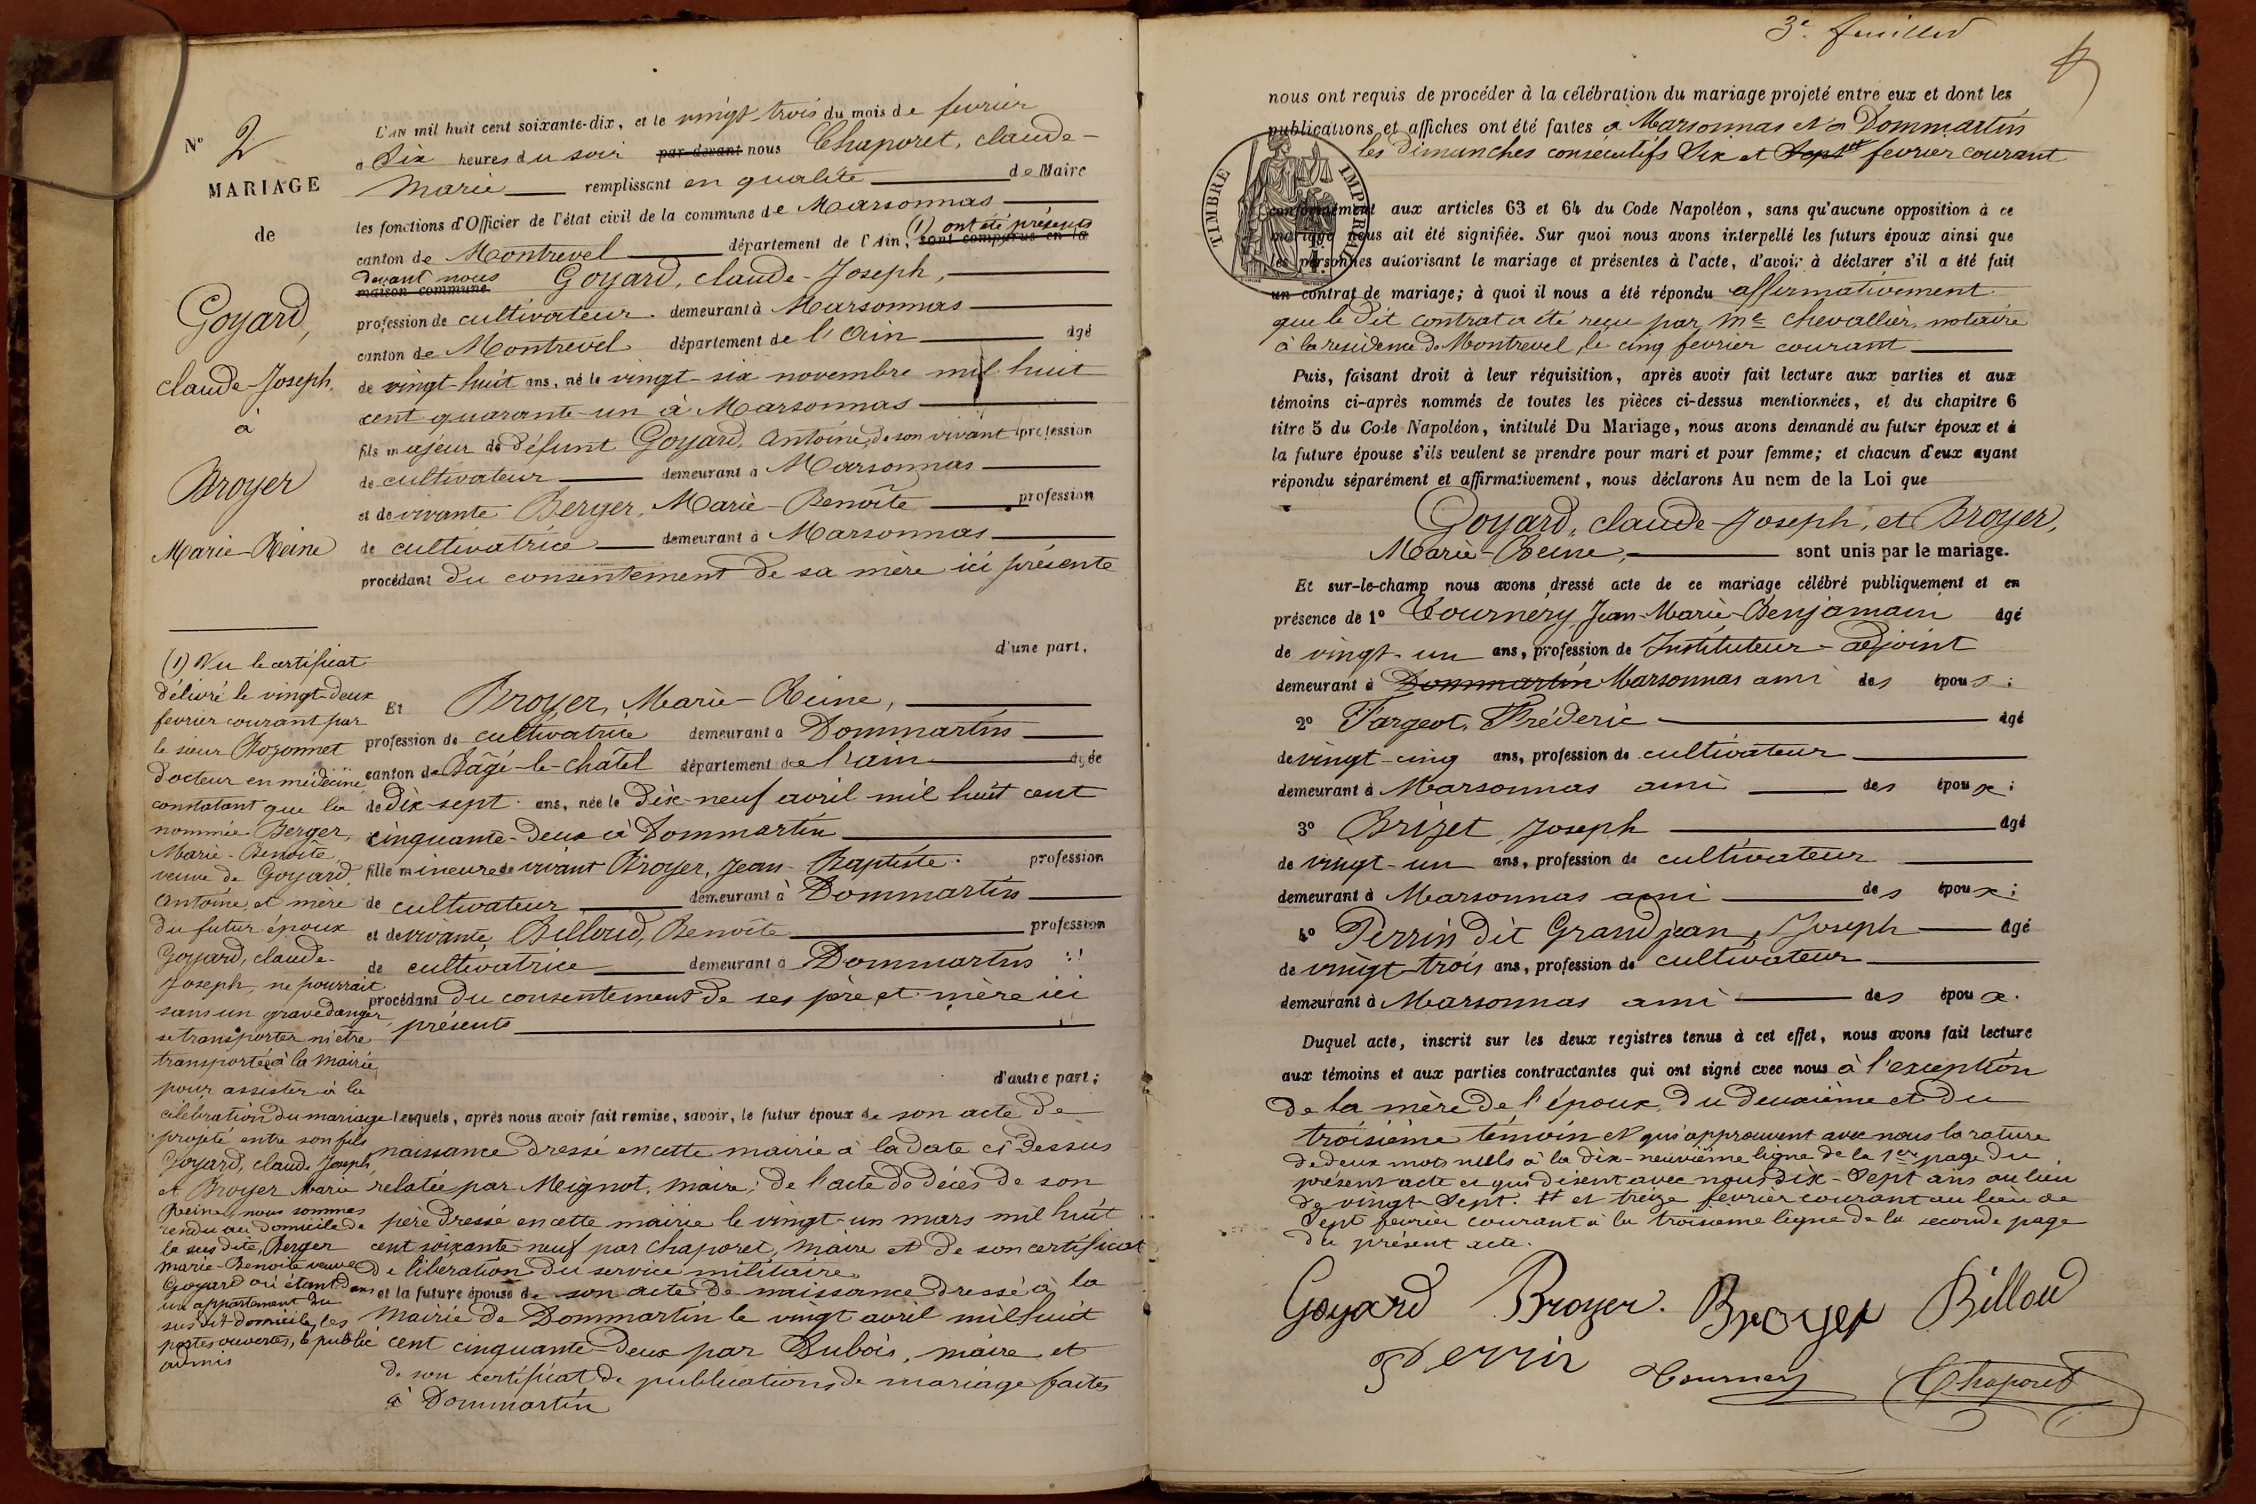 Nº 2
MARIAGE
de
Goyard,
claude-Joseph,
à
Broyer
Marie-Reine
(1) Vu le certificat
délivré le vingt-deux
fevrier courant par
le sieur
docteur en médecine
constatant que la
nommée Berger,
Marie-Benoîte
veuve de Goyard,
Antoine, et mère
du futur époux
Goyard, claude-
Joseph, ne pourrait
sans un grave danger,
se transporter ni être
transportée à la Mairie
pour assister à la
célébration du mariage
projeté entre son fils
Goyard, claude Joseph,
et Broyer Marie
Reine, nous sommes
rendu au domicile de
la sus dite, Berger
Marie-Benoîte veuve
Goyard où étant dans
un appartement du
sus dit domicile, les
portes ouvertes, le public
admis
L'AN mil huit cent soixante-dix, et le vingt trois du mois de fevrier
a Six heures du soir par-devant nous Chaporet, claude-
Marie remplissant en qualité de Maire
les fonctions d'Officier de l'état civil de la commune de Marsonnas
(1) ont été présents
canton de Montrevel département de l'Ain, sont comparus en la
devant nous
maison commune Goyard, claude-Joseph,
profession de cultivateur demeurant à Marsonnas
canton de Montrevel département de l'Ain âgé
de vingt-huit ans, né le vingt-six novembre mil huit
cent quarante-un à Marsonnas
fils majeur de défunt Goyard, Antoine, de son vivant profession
de cultivateur demeurant à Marsonnas
et de vivante Berger, Marie-Benoîte profession
de cultivatrice demeurant à Marsonnas
procédant du consentement de sa mère ici présente
d'une part,
Et Broyer, Marie-Reine,
profession de cultivatrice demeurant à Dommartin
canton de Bâgé-le-châtel département de l'ain âgée
de Dix-sept ans, née le Dix-neuf avril mil huit cent
cinquante-deux à Dommartin
fille mineure de vivant Broyer, Jean-Baptiste profession
de cultivateur demeurant à Dommartin
et de vivante Billoud, Benoîte profession
de cultivatrice demeurant à Dommartin
procédant du consentement de ses père et mère ici
présents
d'autre part;
lesquels, après nous avoir fait remise, savoir, le futur époux de son acte de
naissance dressé en cette mairie à la date ci-dessus
relatée par Meignot, maire; de l'acte de décès de son
père dressé en cette mairie le vingt-un mars mil huit
cent soixante neuf par Chaporet, maire et de son certificat
de libération du service militaire
et la future épouse de son acte de naissance dressé à la
Mairie de Dommartin le vingt avril mil huit
cent cinquante deux par Dubois, maire et
de son certificat de publications de mariage faites
à Dommartin
3e feuillet
nous ont requis de procéder à la célébration du mariage projeté entre eux et dont les
publications et affiches ont été faites à Marsonnas et à Dommartin
les Dimanches consecutifs Six et Sept fevrier courant
TIMBRE IMPERIAL
conformément aux articles 63 et 64 du Code Napoléon, sans qu'aucune opposition à ce
mariage nous ait été signifiée. Sur quoi nous avons interpellé les futurs époux ainsi que
les personnes autorisant le mariage et présentes à l'acte, d'avoir à déclarer s'il a été fait
un contrat de mariage; à quoi il nous a été répondu affirmativement
que le dit contrat a été reçu par Me Chevallier, notaire
à la residence de Montrevel, le cinq fevrier courant
Puis, faisant droit à leur réquisition, après avoir fait lecture aux parties et aux
témoins ci-après nommés de toutes les pièces ci-dessus mentionnées, et du chapitre 6
titre 5 du Code Napoléon, intitulé Du Mariage, nous avons demandé au futur époux et à
la future épouse s'ils veulent se prendre pour mari et pour femme; et chacun d'eux ayant
répondu séparément et affirmativement, nous déclarons Au nom de la Loi que
Goyard, claude-Joseph, et Broyer,
Marie-Reine, sont unis par le mariage.
Et sur-le-champ nous avons dressé acte de ce mariage célébré publiquement et en
présence de 1º Tournery Jean-Marie-Benjamain âgé
de vingt-un ans, profession de Instituteur-adjoint
demeurant à Dommartin Marsonnas ami des époux;
2º Fargeot, Fréderic âgé
de vingt-cinq ans, profession de cultivateur
demeurant à Marsonnas ami des époux;
3º Brizet Joseph âgé
de vingt-un ans, profession de cultivateur
demeurant à Marsonnas ami des époux;
4º Perrin dit Grandjean, Joseph âgé
de vingt-trois ans, profession de cultivateur
demeurant à Marsonnas ami des époux.
Duquel acte, inscrit sur les deux registres tenus à cet effet, nous avons fait lecture
aux témoins et aux parties contractantes qui ont signé avec nous à l'exception
de la mère de l'époux, du deuxième et du
troisième témoin et qui approuvent avec nous la rature
de deux mots nuls à la dix-neuvième ligne de la 1ere page du
présent acte et qui disent avec nous dix-Sept ans au lieu
de vingt-Sept. et treize fevrier courant au lieu de
Sept fevrier courant à la troisieme ligne de la seconde page
du présent acte.
Goyard Broyer. Broyer Billoud
Perrin Tournery Chaporet